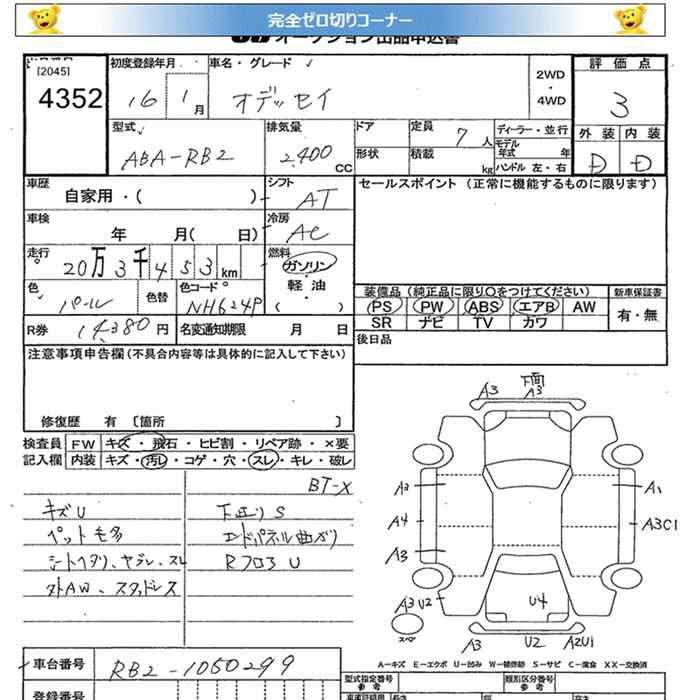 完全ゼロ切りコーナー
オークション出品申込書
[2045]
4352
初度登録年月
16 1月
車名・グレード
オデッセイ
2WD
・
4WD
評価点
3
外装 内装
D D
型式
ABA-RB2
排気量
2,400
CC
ドア
形状
定員 7人
積載 kg
ディーラー・並行
モデル年式 年
ハンドル 左・右
車歴
自家用・( )
シフト AT
車検
年 月( 日)
冷房 AC
走行
20万3千453km
燃料
ガソリン
・
軽油
( )
色 パール
色替
色コード NH624P
R券 14,380円
名変通知期限 月 日
セールスポイント (正常に機能するものに限ります)
装備品 (純正品に限り○をつけてください)
PS PW ABS エアB AW
SR ナビ TV カワ
新車保証書
有・無
後日品
注意事項申告欄(不具合内容等は具体的に記入して下さい)
修復歴 有 〔箇所 〕
検査員 FW キズ・飛石・ヒビ割・リペア跡・×要
記入欄 内装 キズ・汚レ・コゲ・穴・スレ・キレ・破レ
BT-X
キズU
ペット毛多
シートヘタリ、ヤブレ、スレ
外AW、スタッドレス
下廻りS
エンドパネル曲ガリ
Rフロア U
A3
下面
A3
A3
A1
A4
A3C1
A3
A3
U2
スペア
U4
A3
U2
A2U1
A―キズ E―エクボ U―凹み W―補修跡 S―サビ C―腐食 XX―交換済
車台番号
RB2-1050299
登録番号
型式指定番号
参考
類別区分番号
参考